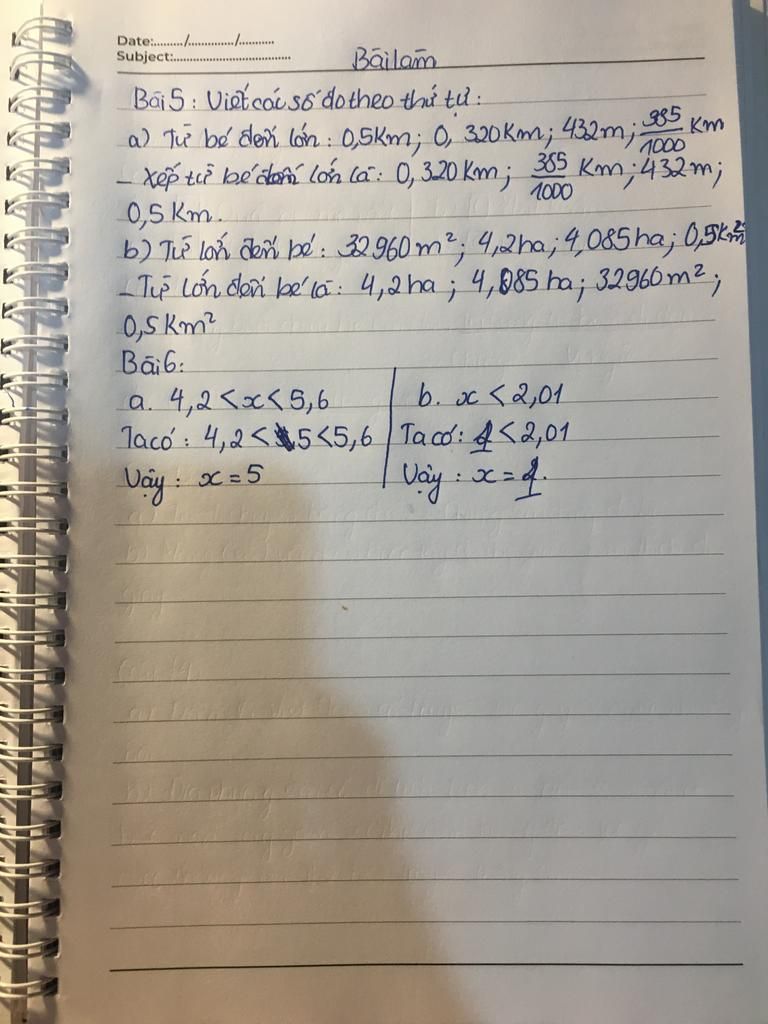 Date:........./............../...........
Subject:....................................
Bài làm
Bài 5 : Viết các số đo theo thứ tự :
a) Từ bé đến lớn : 0,5Km; 0, 320Km; 432m; 385/1000 Km
- Xếp từ bé đến lớn là: 0, 320Km; 385/1000 Km; 432m;
0,5 Km.
b) Từ lớn đến bé : 32960m²; 4,2ha; 4,085ha; 0,5Km²
- Từ lớn đến bé là : 4,2ha ; 4,085 ha; 32960m²;
0,5Km²
Bài 6:
a. 4,2 < x < 5,6
Ta có : 4,2 < 5 < 5,6
Vậy : x = 5
b. x < 2,01
Ta có: 1 < 2,01
Vậy : x = 1.